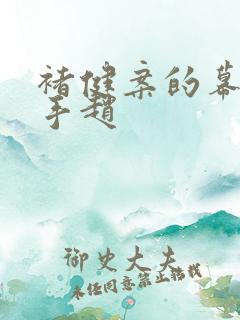 褚健案的幕
手赵
御史大夫
未经同意禁止转载